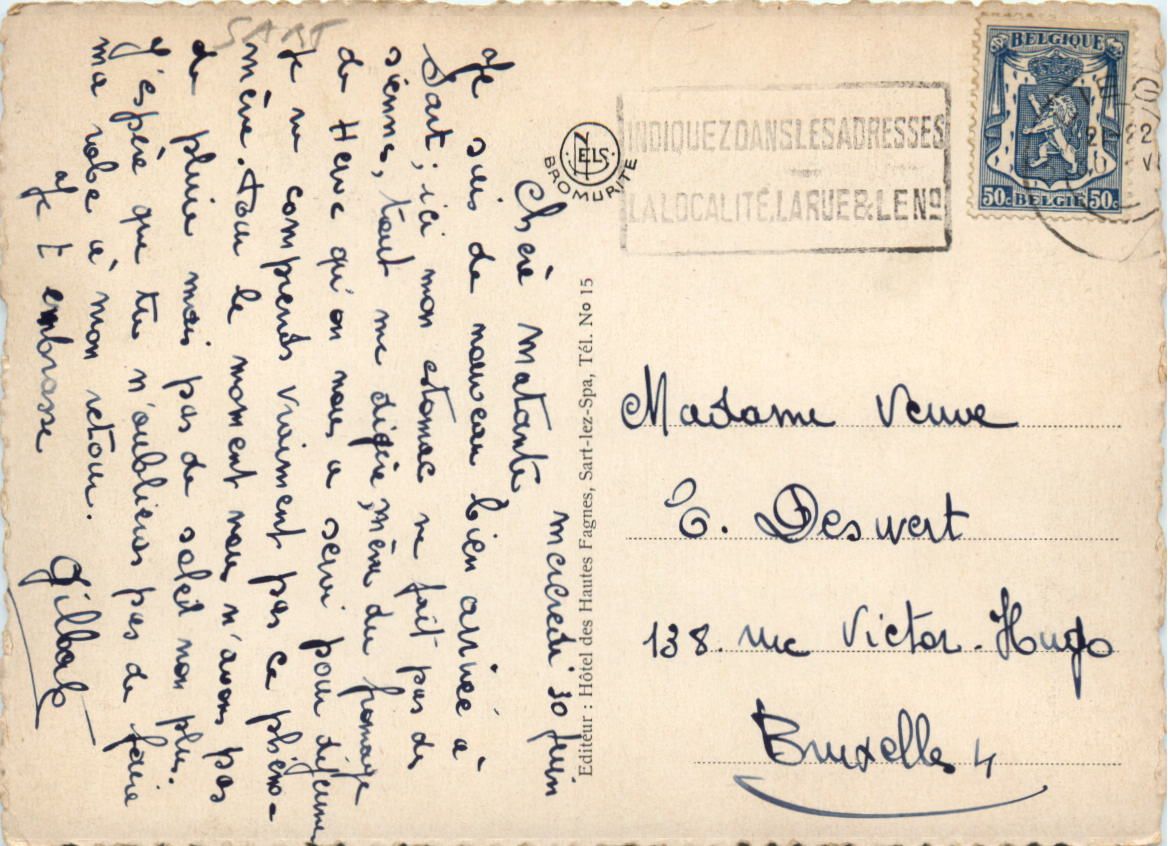 SART
mercredi 30 Juin
Chère Matante,
Je suis de nouveau bien arrivée à
Sart; ici mon estomac ne fait pas des
siennes, tout me digère, même du fromage
de Herve qu'on nous a servi pour déjeuner
Je ne comprends vraiment pas ce phéno-
mène. Pour le moment nous n'avons pas
de pluie mais pas de soleil non plus.
J'éspère que tu n'oublieras pas de faire
ma robe à mon retour.
Je t'embrasse
Editeur : Hôtel des Hautes Fagnes, Sart-lez-Spa, Tél. No 15
NELS
BROMURITE
INDIQUEZ DANS LES ADRESSES
LA LOCALITÉ, LA RUE & LE No
BELGIQUE
50c BELGIE 50c
Madame Veuve
E. Deswert
138. rue Victor-Hugo
Bruxelles 4